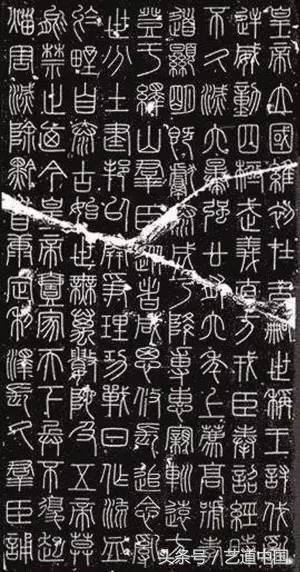 皇帝立國維初在昔嗣世稱王討伐亂
逆威動四極武義直方戎臣奉詔經時
不久滅六暴強廿有六年上薦高號孝
道顯明既獻泰成乃降專惠親巡遠方
登于繹山群臣從者咸思攸長追念亂
世分土建邦以開爭理功戰日作流血
於野自泰古始世無萬數陀及五帝莫
能禁止迺今皇帝壹家天下兵不復起
災害滅除黔首康定利澤長久群臣誦
头条号／艺道中国